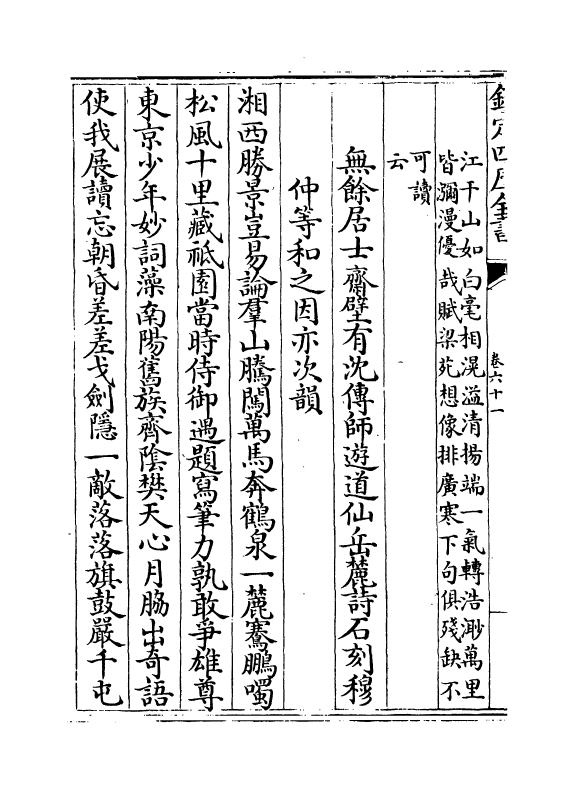 欽定四庫全書
卷六十一
江干山如白毫相滉溢清揚端一氣轉浩渺萬里
皆瀰漫優哉賦梁苑想像排廣寒下句俱殘缺不
可讀
云
無餘居士齋壁有沈傳師遊道仙岳麓詩石刻穆
仲等和之因亦次韻
湘西勝景豈易論羣山騰闖萬馬奔鶴泉一麓騫鵬噣
松風十里藏祇園當時侍御遇題寫筆力孰敢爭雄尊
東京少年妙詞藻南陽舊族齊陰樊天心月脇出奇語
使我展讀忘朝昏差差戈劍隱一敵落落旗鼓嚴千屯